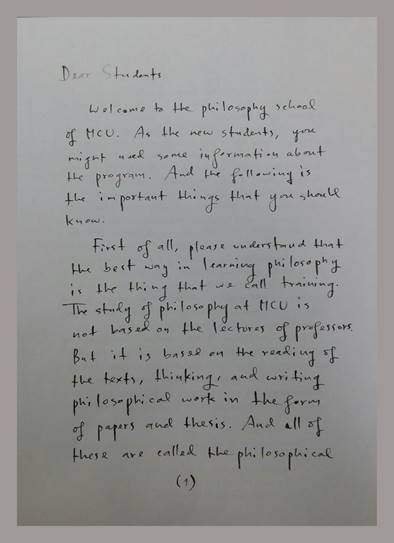 Dear Students
Welcome to the philosophy school
of MCU. As the new students, you
might need some information about
the program. And the following is
the important things that you should
know.
First of all, please understand that
the best way in learning philosophy
is the thing that we call training.
The study of philosophy at MCU is
not based on the lectures of professors.
But it is based on the reading of
the texts, thinking, and writing
philosophical work in the form
of papers and thesis. And all of
these are called the philosophical
(1)